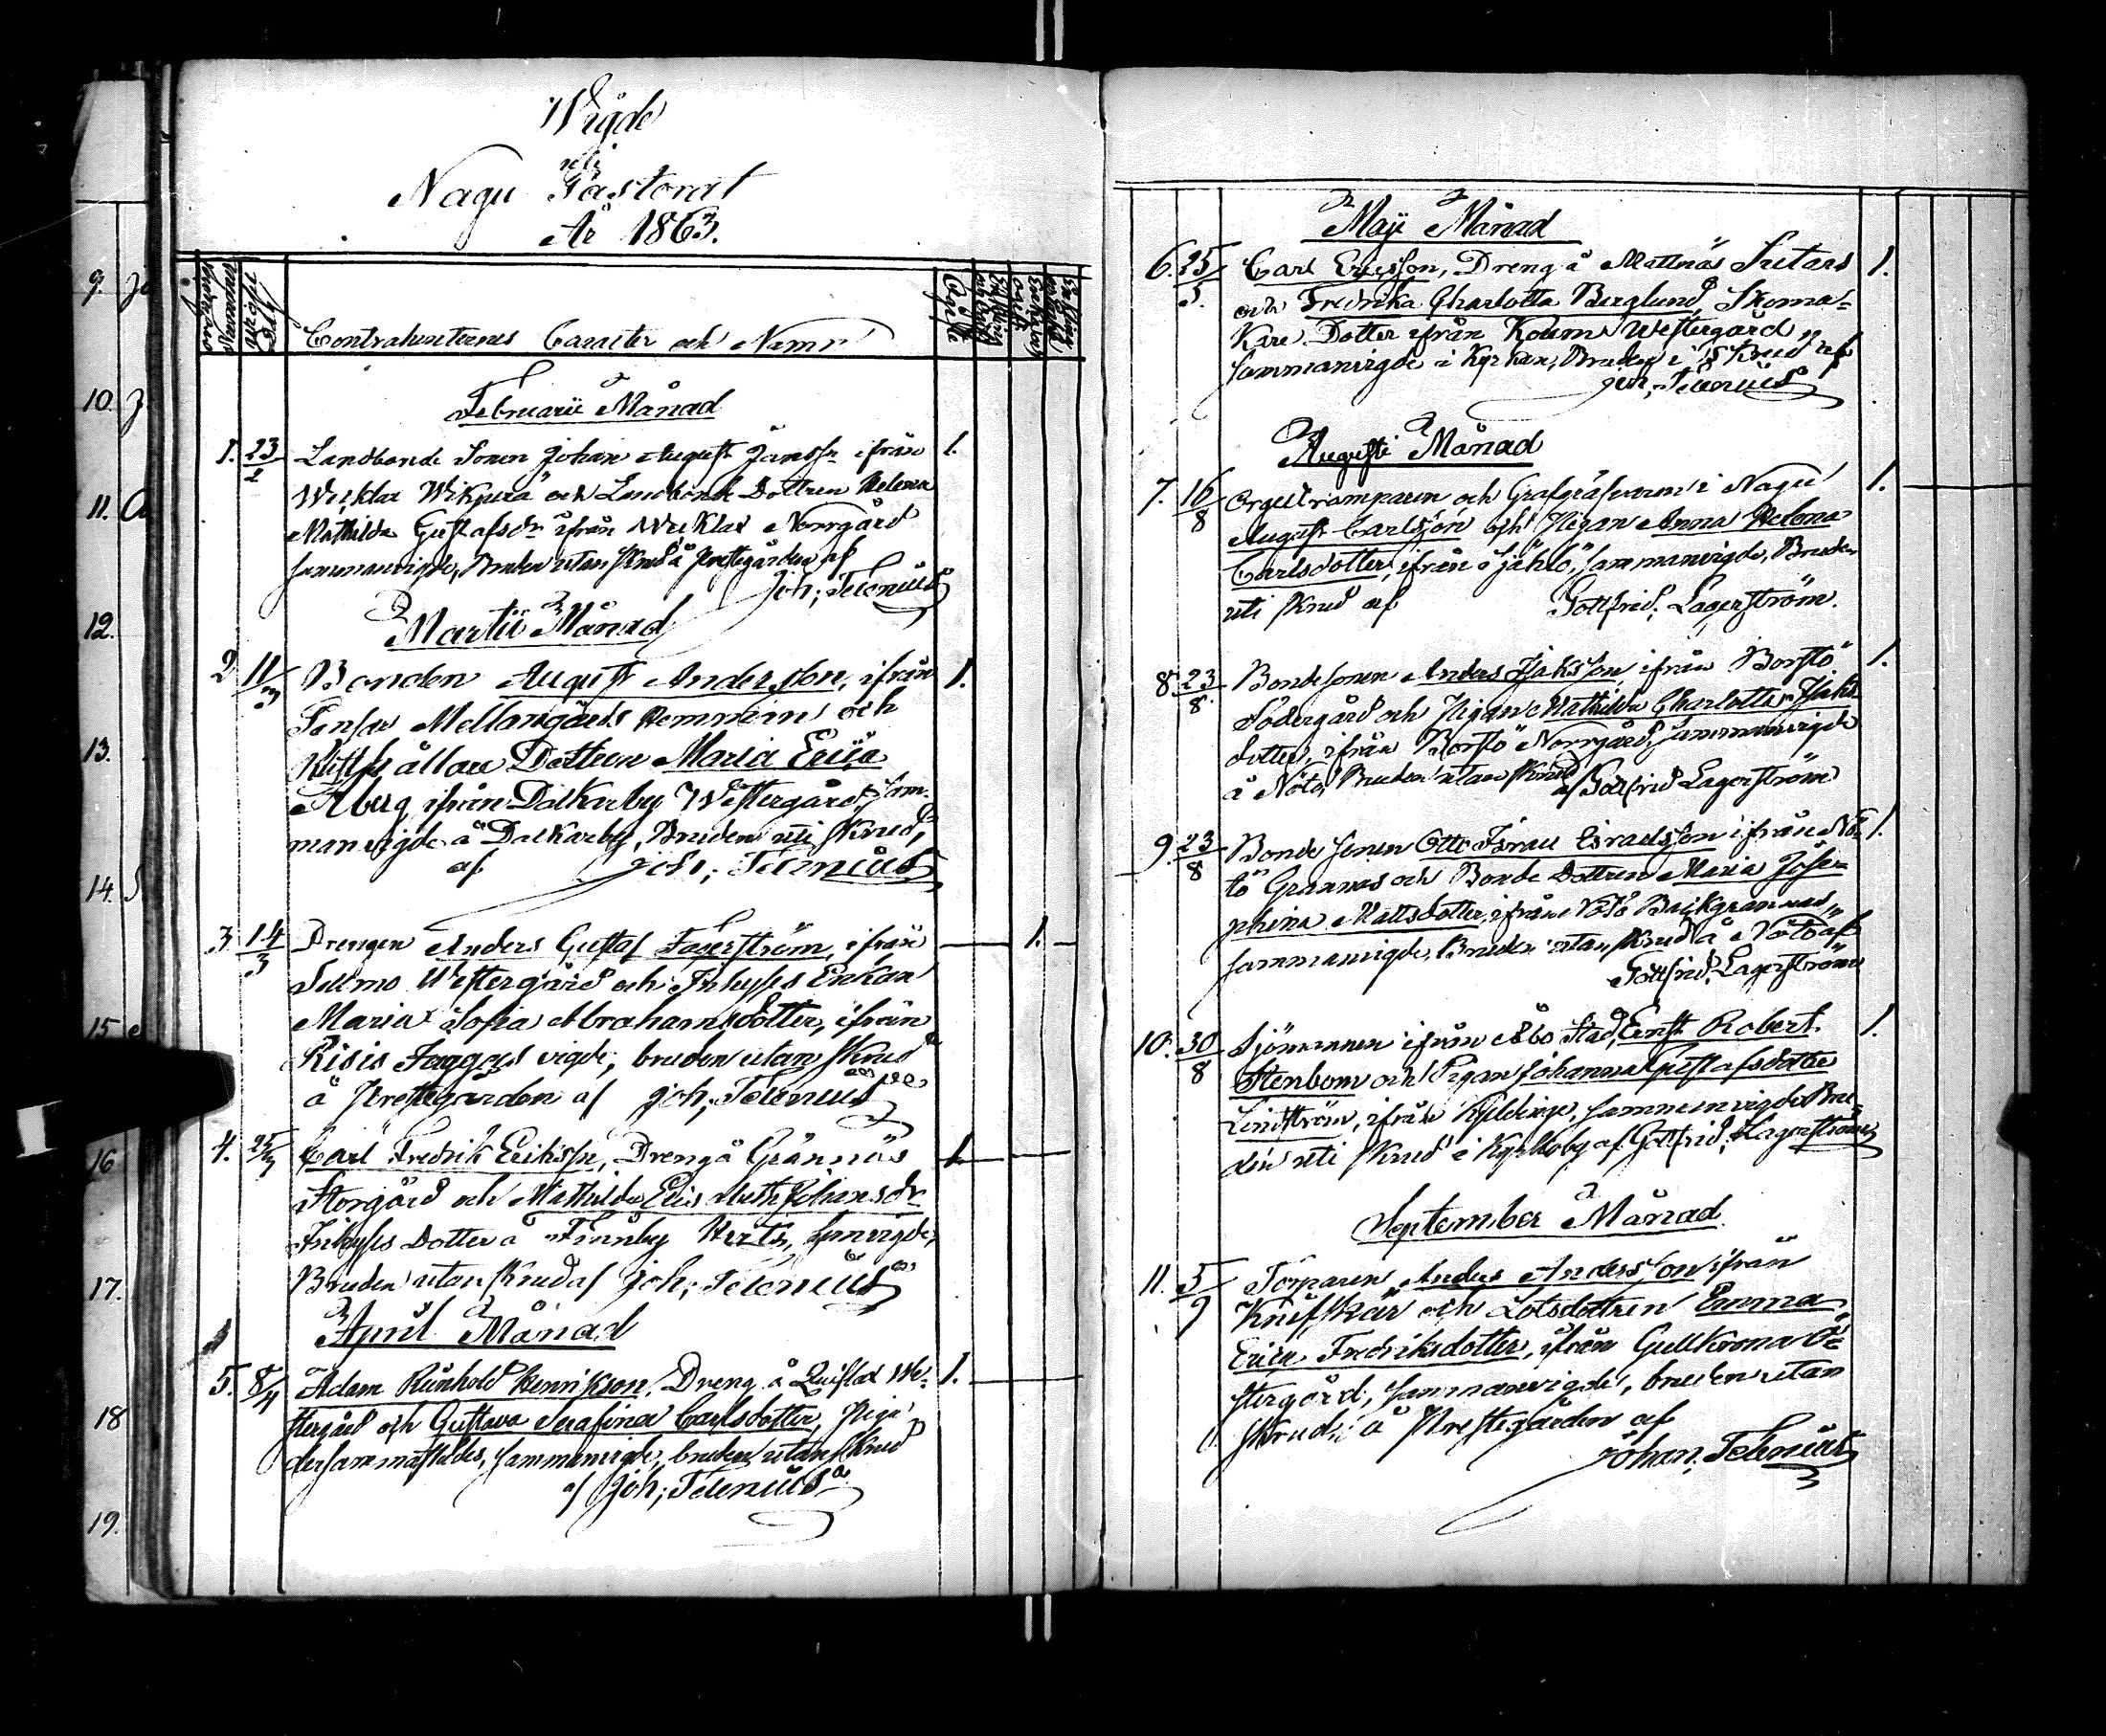 Wigde
uti
Nagu Pastorat
År 1863.
Contrahenternes Caracter och Namn
Februarii Månad
1. 23/2 Landbonde Sonen Johan August Jansson ifrån 1.
och Landbonde Dottren Helena
Mathilda Gustafsdr ifrån Norrgård
sammanvigde, Bruden utan skrud å Prestegården af
Joh; Telenius
Martii Månad
2 11/3 Bonden August Andersson, ifrån 1.
Mellangårds Hemman och
Dottren Maria Erica
Åberg ifrån Dalkarby Westergård, sam-
manvigde å Dalkarby, Bruden uti skrud,
af Joh; Telenius
3 14/3 Drengen Anders Gustaf Fagerström, ifrån 1.
Westergård och Inhyses Enkan
Maria Sofia Abrahamsdotter, ifrån
Risis vigde, bruden utan skrud
å Prestegården af Joh; Telenius
4. 25/3 Carl Fredrik Eriksson, Dreng å Grännäs 1.
Storgård och Mathilda Johansdr
Inhyses Dotter å Finnby
Bruden utan skrud af Joh; Telenius
April Månad
5. 8/4 Adam Reinhold Henrikson, Dreng å We- 1.
stergård och Gustava Serafina Carlsdotter, Piga
dersammastädes, sammanvigde, bruden utan skrud
af Joh; Telenius
9.
10.
11.
12.
13.
14.
15
16
17.
18
19.
Maji Månad
6. 25/5. Carl Ericsson, Dreng å Mattnäs 1.
och Fredrika Charlotta Berglund Skoma-
kare Dotter ifrån Westergård
sammanvigde i Kyrkan, Bruden i skrud af
Joh; Telenius
Augusti Månad
7. 16/8 Orgeltramparen och Grafgräfvaren i Nagu 1.
August Carlsson och Pigan Anna Helena
Carlsdotter, ifrån sammanvigde, Bruden
uti skrud af Gottfrid; Lagerström.
8. 23/8. Bondesonen Anders Isaksson ifrån Borstö 1.
Södergård och Pigan Mathilda Charlotta Isaks-
dotter, ifrån Borstö Norrgård, sammanvigde
å Nötö, Bruden utan skrud af Gottfrid Lagerström
9. 23/8 Bonde Sonen Otto Israel Israelsson ifrån Nö- 1.
tö Grannas och Bonde Dottren Maria Jose-
phina Mattsdotter, ifrån Nötö Backgrannas,
sammanvigde, Bruden utan skrud å Nötö af
Gottfrid. Lagerström
10. 30/8 Sjömannen ifrån Åbo Stad, Ernst Robert 1.
Stenbom och Pigan Johanna Gustafsdotter
Lindström, ifrån sammanvigde Bru-
den uti skrud i Kyrkoby af Gottfrid; Lagerström
September Månad
11. 5/9 Torparen Anders Andersson ifrån
Knifskär och Lotsdottren Emma
Erica Fredriksdotter, ifrån Gullkrona Ö-
stergård, sammanvigde, bruden utan
skrud, å Prestegården af
Johan; Telenius